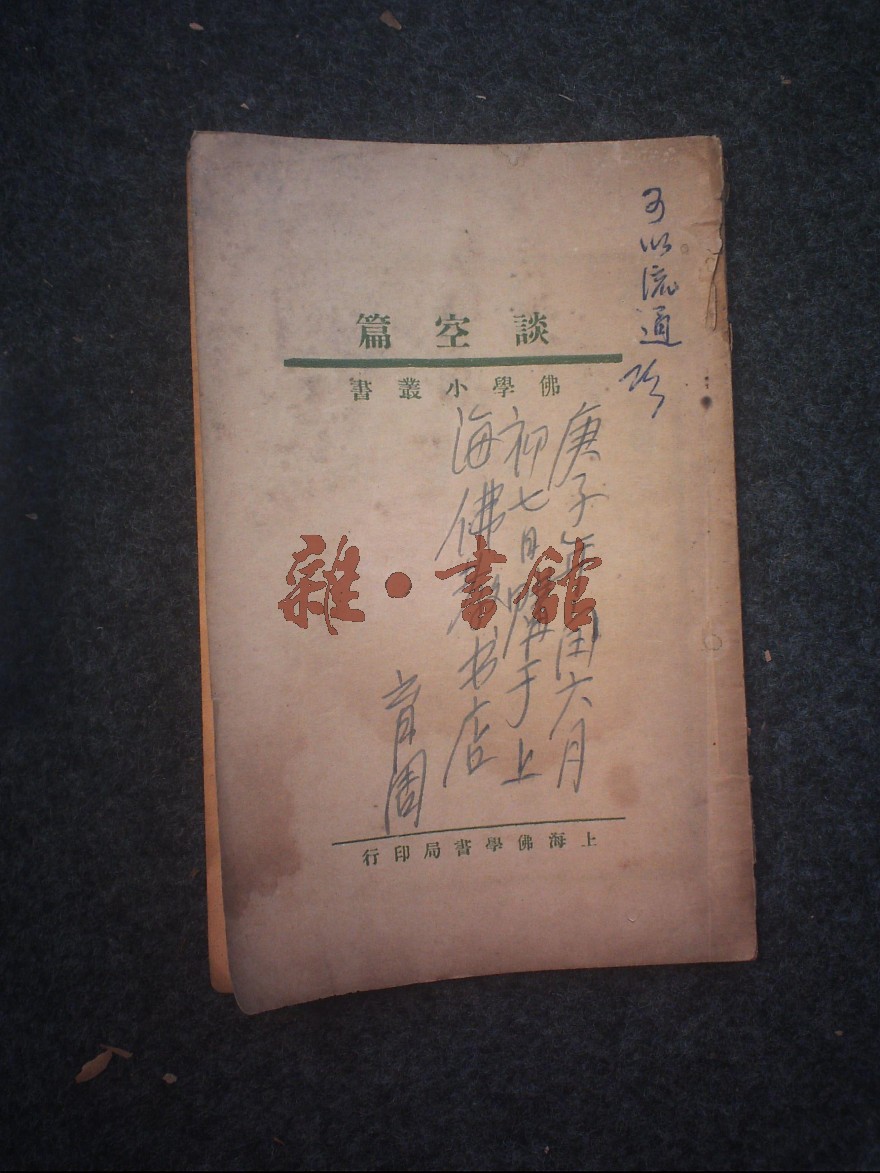 談空篇
佛學小叢書
可以流通
庚子年閏六月
初七日購于上
海佛教书店
育周
雜·書館
上海佛學書局印行